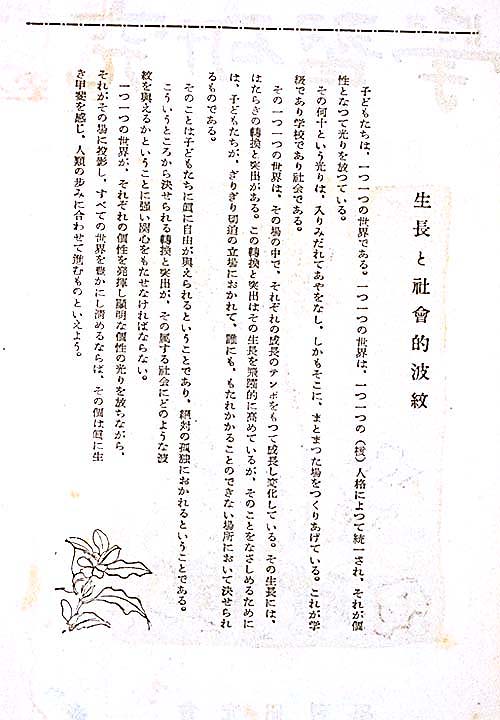 生長と社會的波紋
子どもたちは、一つ一つの世界である。一つ一つの世界は、一つ一つの（核）人格によつて統一され、それが個
性となつて光りを放つている。
その何十という光りは、入りみだれてあやをなし、しかもそこに、まとまつた場をつくりあげている。これが学
級であり学校であり社会である。
その一つ一つの世界は、その場の中で、それぞれの成長のテンポをもつて成長し変化している。その生長には、
はたらきの轉換と突出がある。この轉換と突出はその生長を飛躍的に高めているが、そのことをなさしめるために
は、子どもたちが、ぎりぎり切迫の立場におかれて、誰にも、もたれかかることのできない場所において決せられ
るものである。
そのことは子どもたちに眞に自由が與えられるということであり、絕対の孤独におかれるということである。
こういうところから決せられる轉換と突出が、その属する社会にどのような波
紋を與えるかということに强い関心をもたせなければならない。
一つ一つの世界が、それぞれの個性を発揮し顯明な個性の光りを放ちながら、
それがその場に投影し、すべての世界を豊かにし清めるならば、その個は眞に生
き甲斐を感じ、人類の歩みに合わせて進むものといえよう。